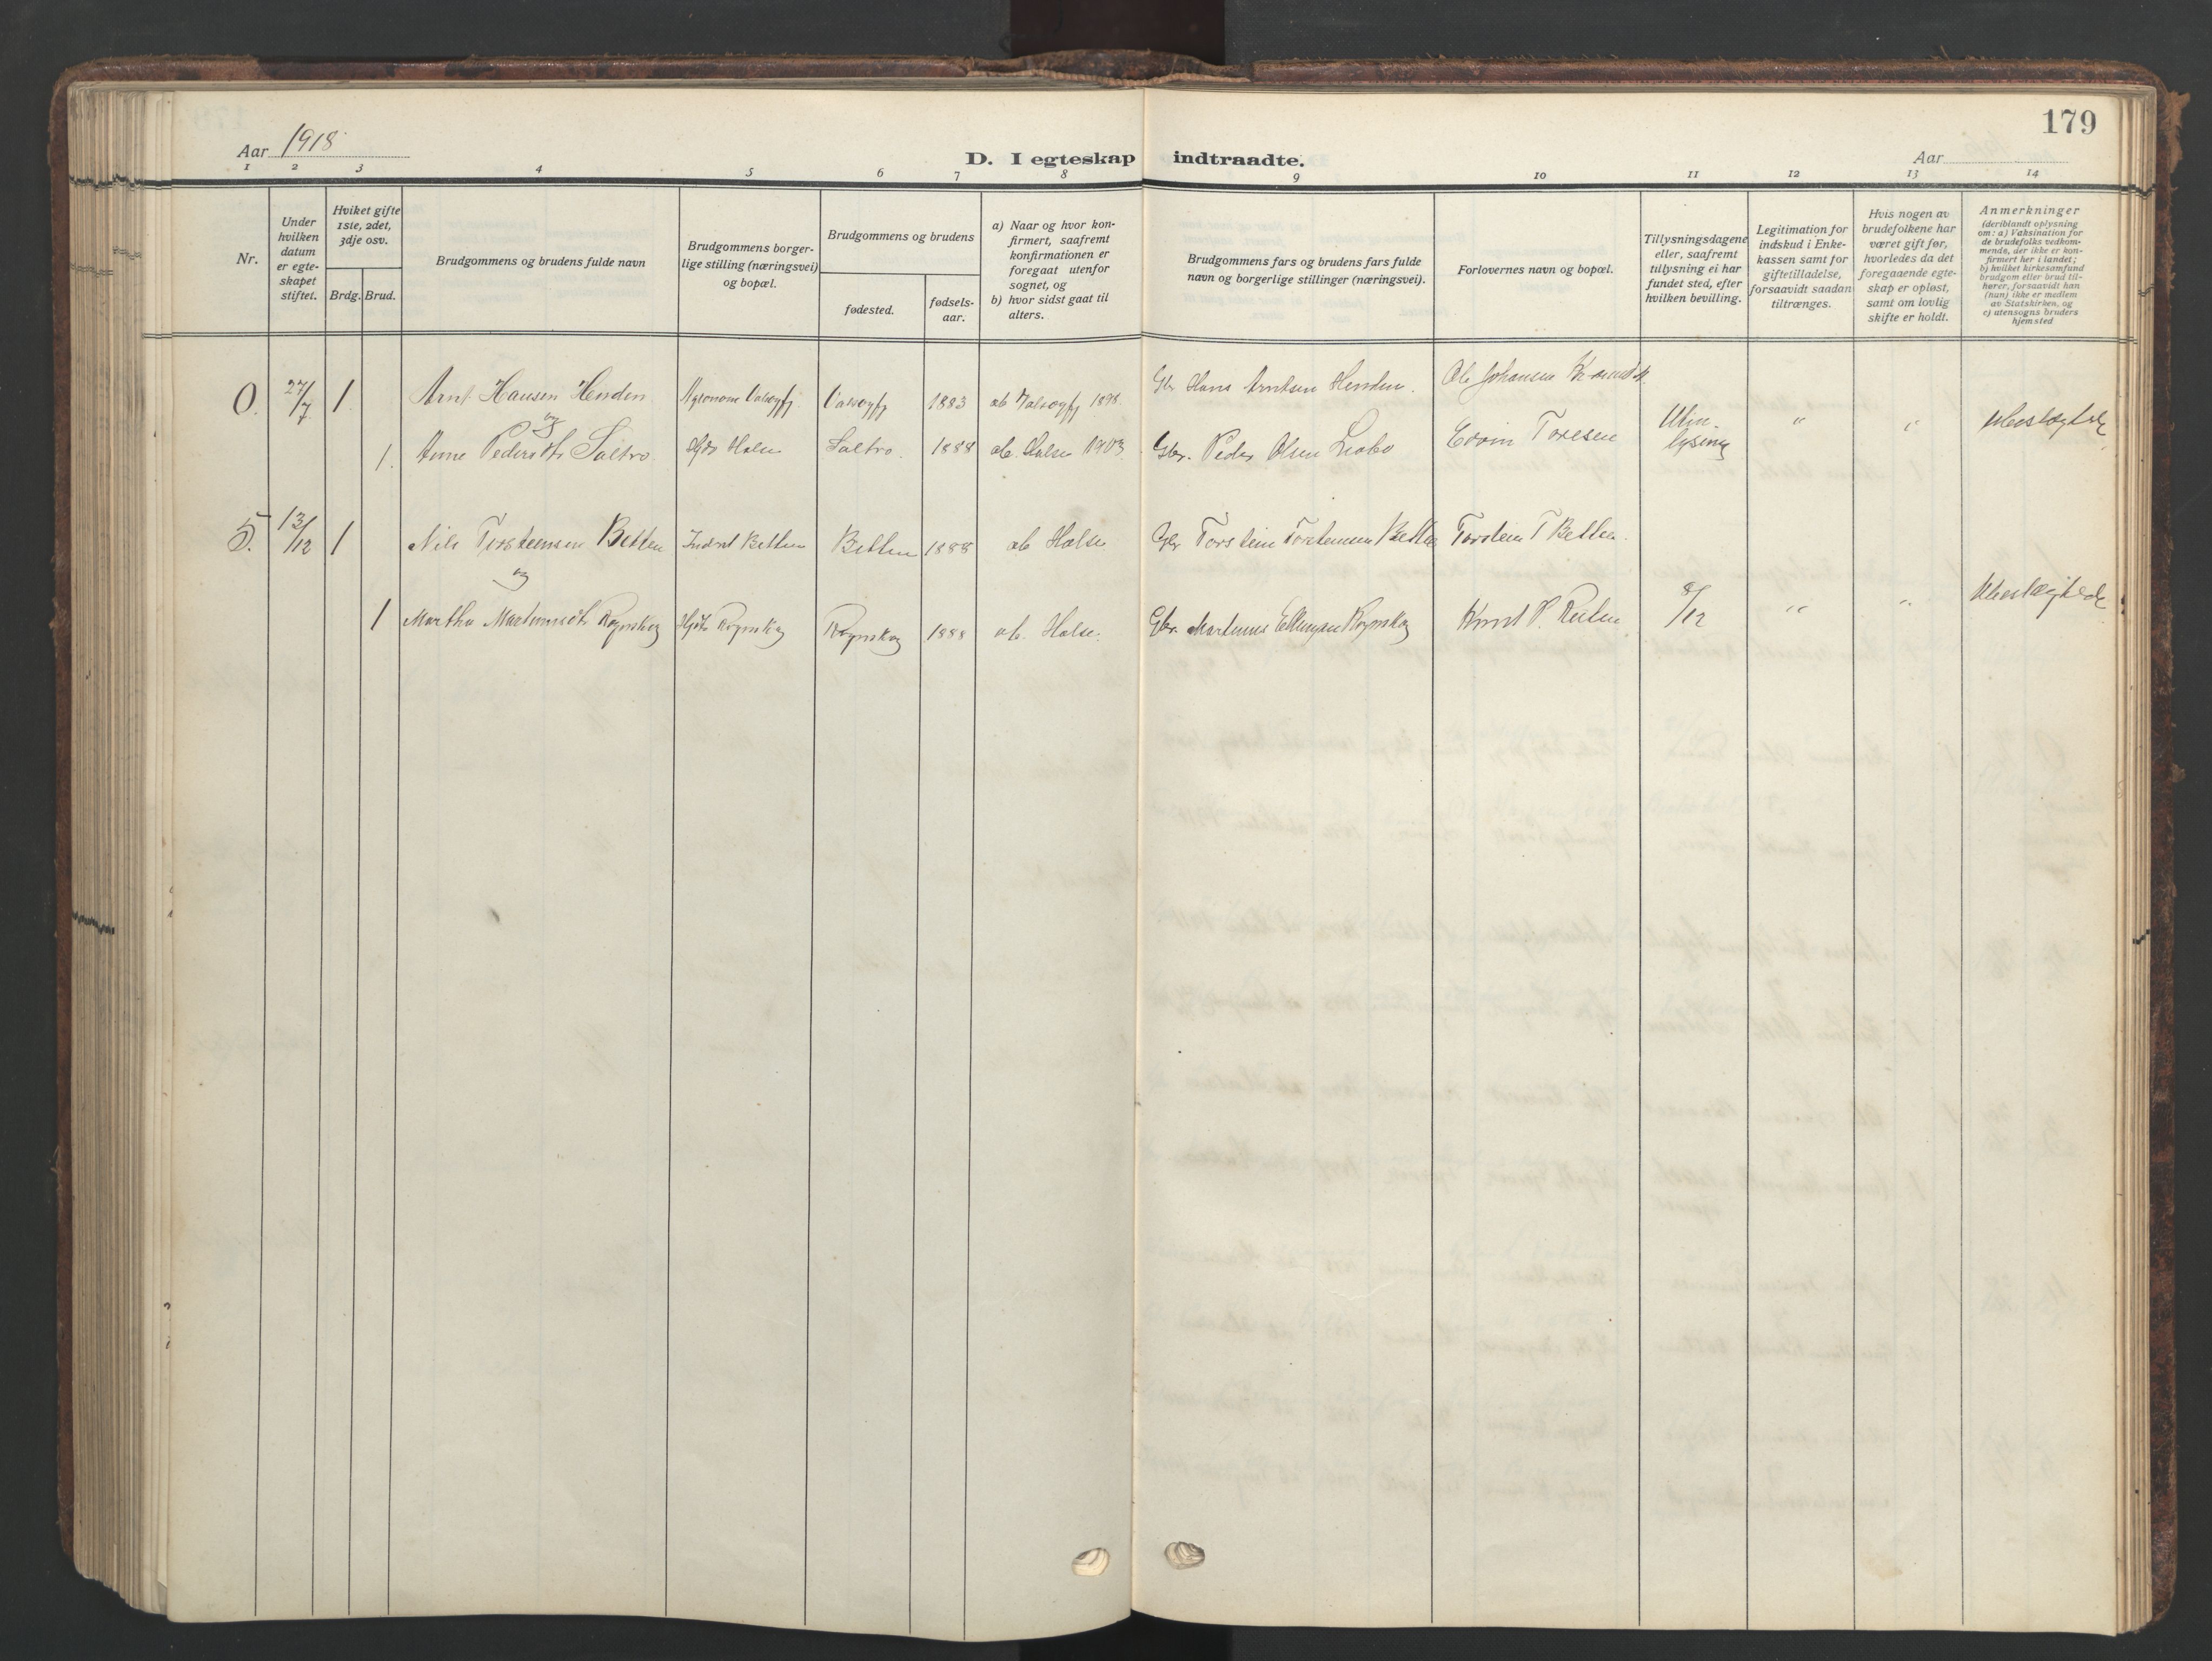 179
Aar 1918
D. I egteskap indtraadte.
Aar
1 2 3 4 5 6 7 8 9 10 11 12 13 14
Nr.
Under hvilken datum er egte-skapet stiftet.
Hviket gifte 1ste, 2det, 3dje osv.
Brdg. Brud.
Brudgommens og brudens fulde navn
Brudgommens borger-lige stilling (næringsvei) og bopæl.
Brudgommens og brudens
fødested.
fødsels-aar.
a) Naar og hvor kon-firmert, saafremt konfirmationen er foregaat utenfor sognet, og
b) hvor sidst gaat til alters.
Brudgommens fars og brudens fars fulde navn og borgerlige stillinger (næringsvei).
Forlovernes navn og bopæl.
Tillysningsdagene eller, saafremt tillysning ei har fundet sted, efter hvilken bevilling.
Legitimation for indskud i Enke-kassen samt for giftetilladelse, forsaavidt saadan tiltrænges.
Hvis nogen av brudefolkene har været gift før, hvorledes da det foregaaende egte-skap er opløst, samt om lovlig skifte er holdt.
Anmerkninger
(deriblandt oplysning om: a) Vaksination for de brudefolks vedkom-mende, der ikke er kon-firmert her i landet; b) hvilket kirkesamfund brudgom eller brud til-hører, forsaavidt han (hun) ikke er medlem av Statskirken, og c) utensogns bruders hjemsted
0. 27/7 1. Arnt Hansen Henden Agronom Valsøyfj. Valsøyfj 1883 ab Valsøyfj 1898. Gbr Hans Arntsen Henden. Ole Johansen
og
1. Anne Pedersdtr Saltrø Halse Saltrø. 1888 ab. Halse 1903. Gbr. Peder Olsen Edvin Toresen Utin-lysning " " Ubeslægtede
5. 13/12 1 Nils Torsteinsen Betten Betten Betten 1888 ab Halse Gbr Torstein Torsteinsen Betten Torstein T Betten.
og
1 Martha Martinusdtr Røgnskog Røgnskog Røgnskog 1888 ab. Halse. Gbr. Martinus Ellingsen Røgnskog Knut P. 8/12 " " Ubeslægtede